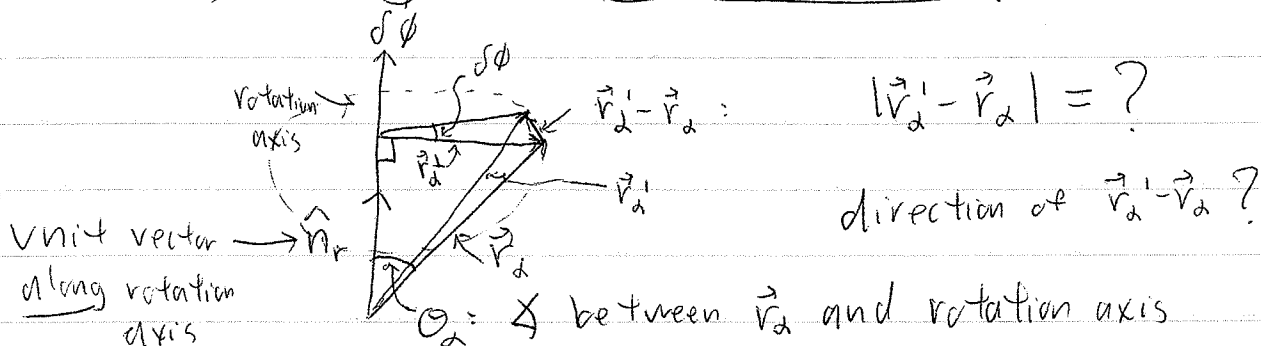 δφ⃗
δφ
rotation
axis
r⃗α⊥
r⃗α' - r⃗α :
|r⃗α' - r⃗α| = ?
r⃗α'
direction of r⃗α' - r⃗α ?
Unit vector → n̂r
along rotation
axis
r⃗α
θα : ∡ between r⃗α and rotation axis